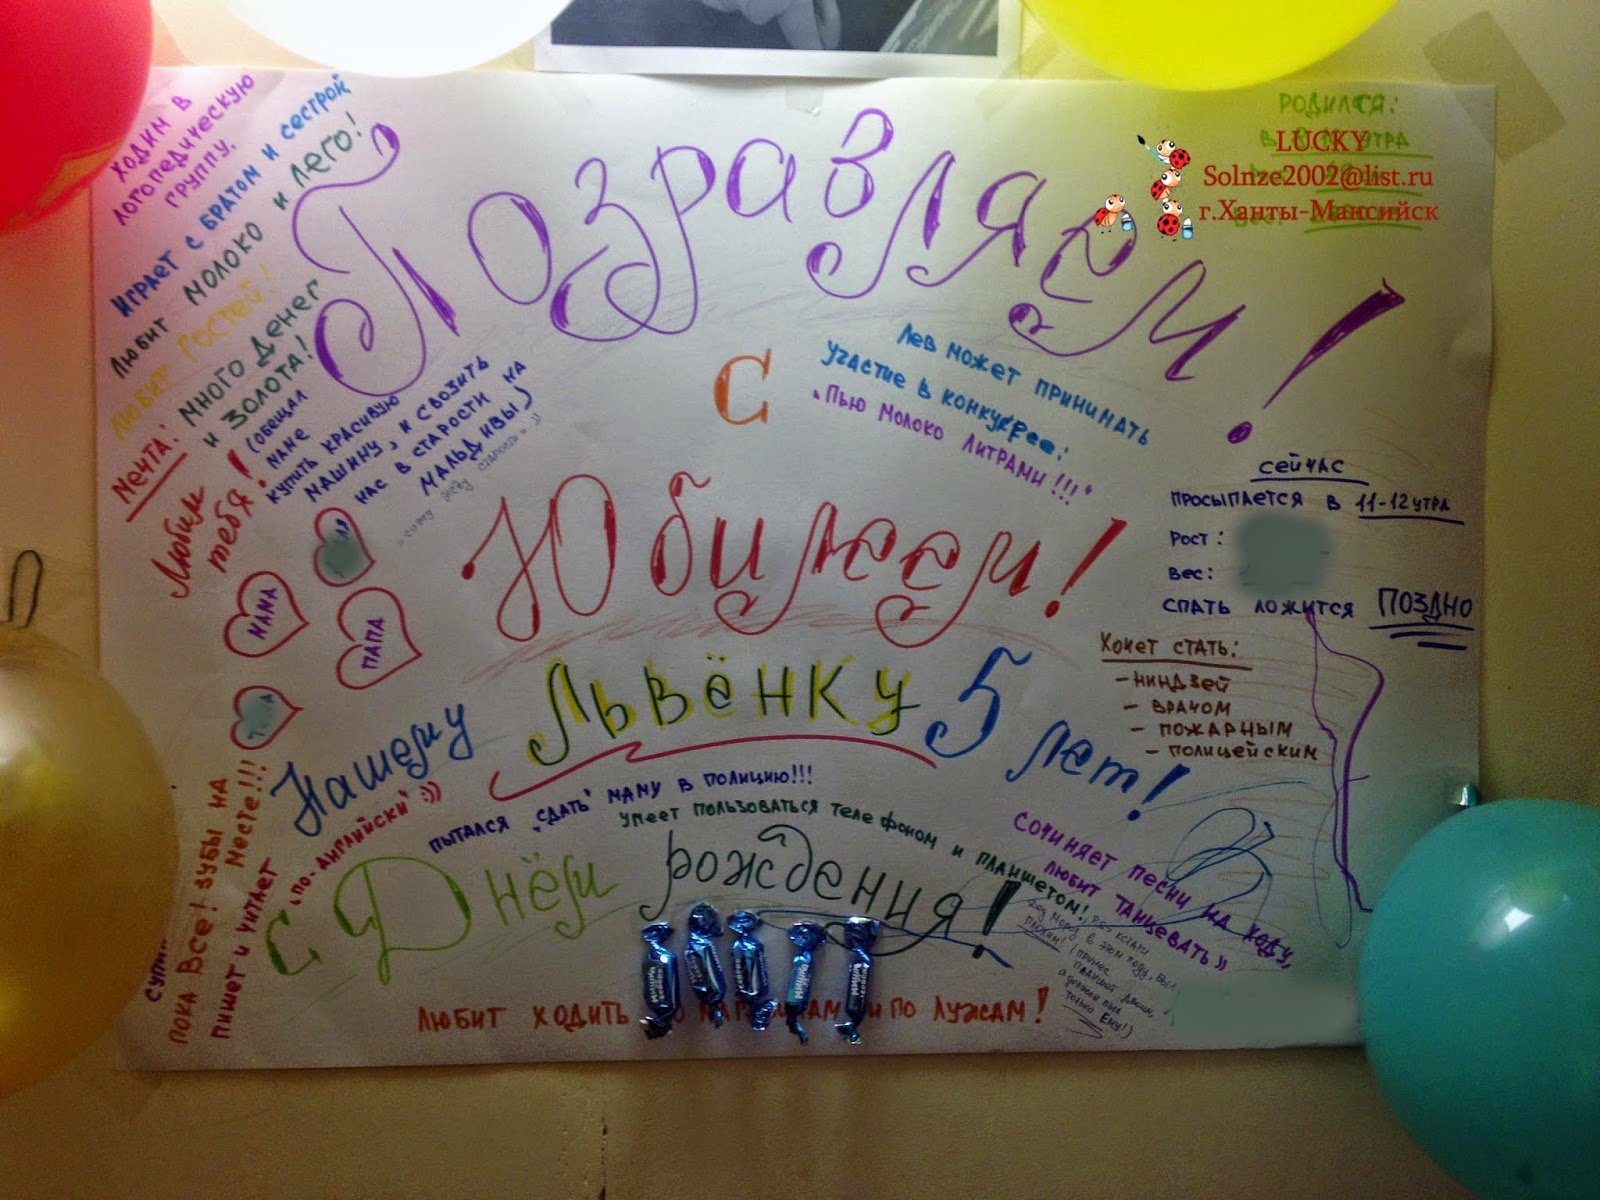 Позравляем!
с
Юбилеем!
Нашему
Львёнку 5 лет!
с Днём рождения!
Ходим в
логопедическую
группу.
Играет с братом и сестрой,
Любит молоко и лего!
Любит гостей!
Мечта: много денег
и золота!
(обещал
маме
купить красивую
машину, и свозить
нас в старости на
мальдивы)
жду старости
Любим
тебя!
мама
папа
Лев может принимать
участие в конкурсе:
"Пью молоко литрами!!!"
родился:
утра
LUCKY
Solnze2002@list.ru
г.Ханты-Мансийск
сейчас
просыпается в 11-12 утра
Рост:
Вес:
спать ложится поздно
Хочет стать:
- ниндзей
- врачом
- пожарным
- полицейским
пытался "сдать" маму в полицию!!!
умеет пользоваться телефоном и планшетом!
Сочиняет песни на ходу,
любит танцевать"
Дед мороз, кстати
в этом году, был
папой!
(принес
планшет двоим,
а должен был
только ему!)
пока все! зубы на
месте!!!
пишет и читает
"по-английски":))
любит ходить и по лужам!